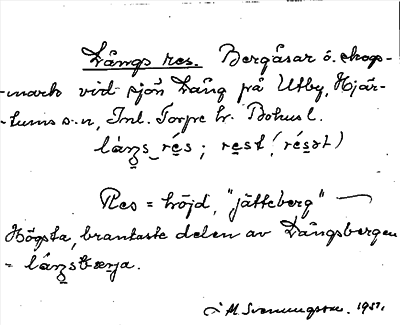 Långs res. Bergåsar o. skogs-
-mark vid sjön Lång på Utby, Hjär-
-tums s-n, Inl. Torpe hr. Bohusl.
láŋs rés; rest (résət)
Res = höjd, "jätteberg" —
Högsta, brantaste delen av Långsbergen
- láŋsbærja.
M. Svenningson. 1951.